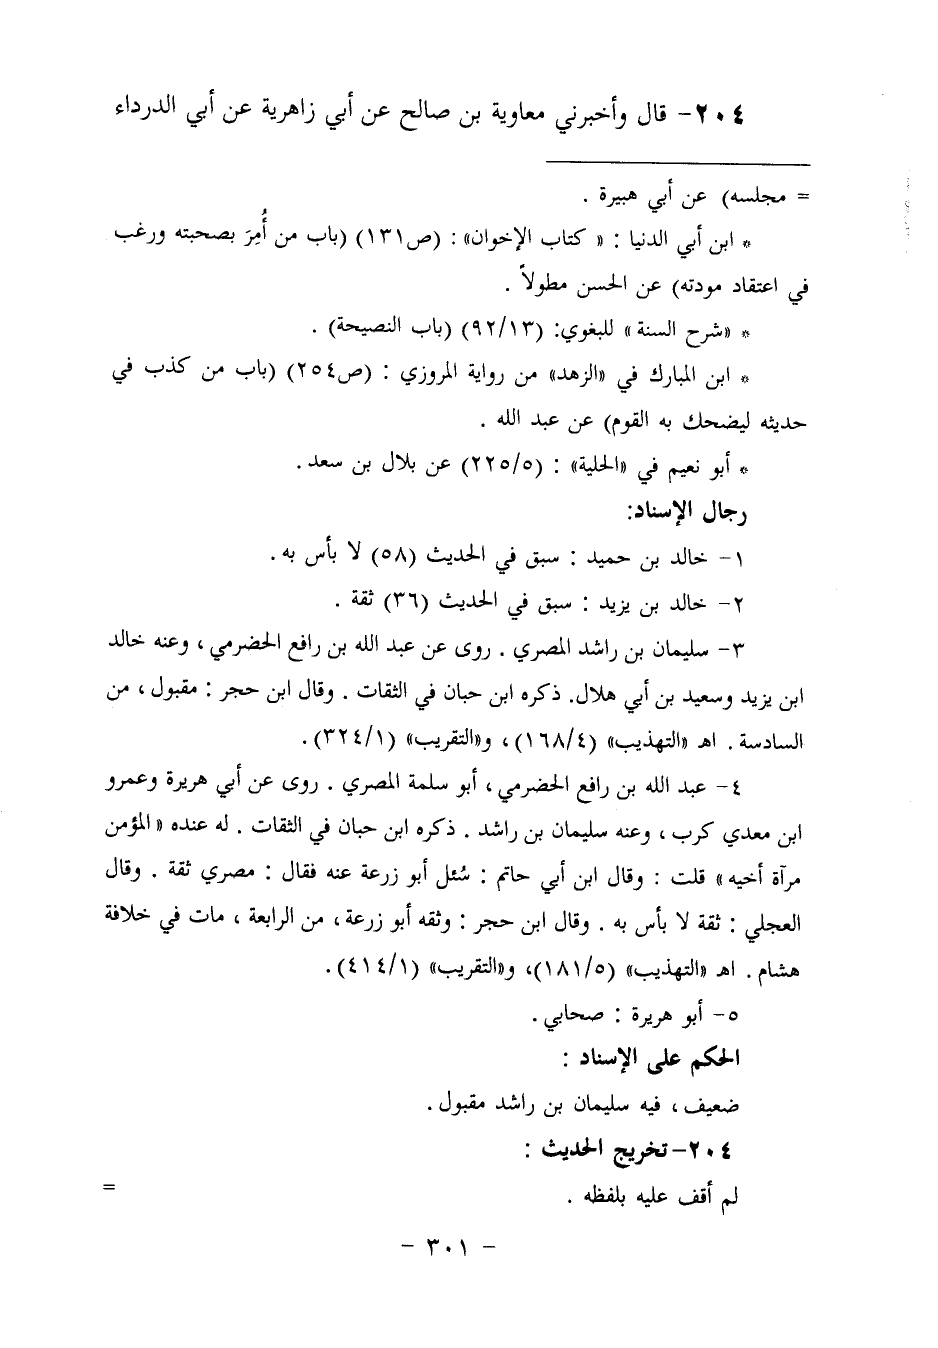 ٢٠٤- قال وأخبرني معاوية بن صالح عن أبي زاهرية عن أبي الدرداء
= مجلسه) عن أبي هبيرة .
* ابن أبي الدنيا : « كتاب الإخوان» : (ص١٣١) (باب من أُمِرَ بصحبته ورغب
في اعتقاد مودته) عن الحسن مطولاً .
* «شرح السنة » للبغوي: (٩٢/١٣) (باب النصيحة) .
* ابن المبارك في «الزهد» من رواية المروزي : (ص٢٥٤) (باب من كذب في
حديثه ليضحك به القوم) عن عبد الله .
* أبو نعيم في «الحلية» : (٢٢٥/٥) عن بلال بن سعد.
رجال الإسناد:
١- خالد بن حميد : سبق في الحديث (٥٨) لا بأس به.
٢- خالد بن يزيد : سبق في الحديث (٣٦) ثقة .
٣- سليمان بن راشد المصري . روى عن عبد الله بن رافع الحضرمي ، وعنه خالد
ابن يزيد وسعيد بن أبي هلال. ذكره ابن حبان في الثقات . وقال ابن حجر : مقبول ، من
السادسة . اهـ «التهذيب» (١٦٨/٤) ، و«التقريب» (٣٢٤/١).
٤- عبد الله بن رافع الحضرمي ، أبو سلمة المصري . روى عن أبي هريرة وعمرو
ابن معدي كرب ، وعنه سليمان بن راشد . ذكره ابن حبان في الثقات . له عنده « المؤمن
مرآة أخيه » قلت : وقال ابن أبي حاتم : سُئل أبو زرعة عنه فقال : مصري ثقة . وقال
العجلي : ثقة لا بأس به . وقال ابن حجر : وثقه أبو زرعة ، من الرابعة ، مات في خلافة
هشام . اهـ «التهذيب» (١٨١/٥)، و«التقريب» (٤١٤/١).
٥- أبو هريرة : صحابي .
الحكم على الإسناد :
ضعيف ، فيه سليمان بن راشد مقبول .
٢٠٤- تخريج الحديث :
لم أقف عليه بلفظه . =
- ٣٠١ -